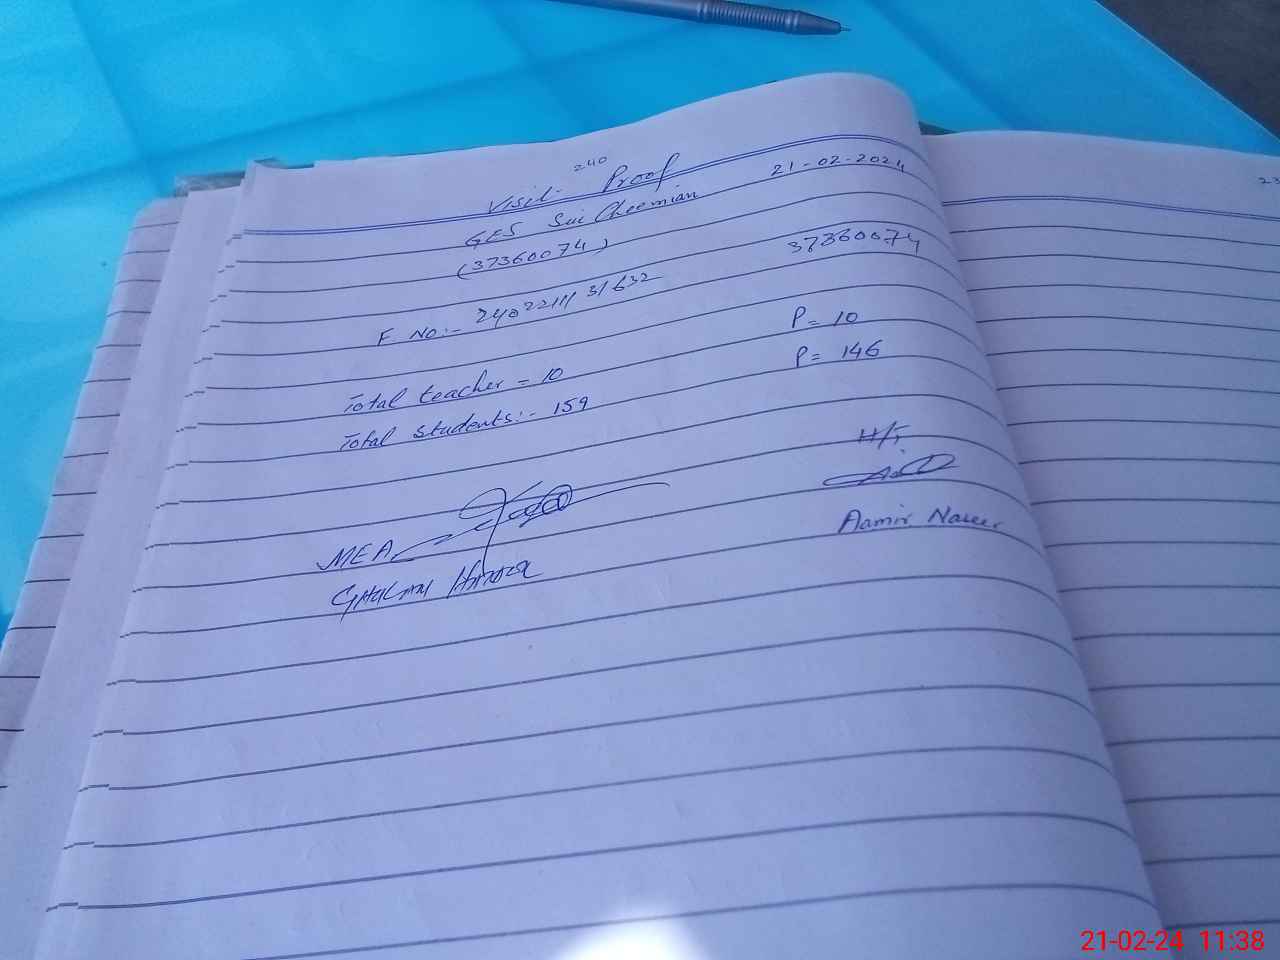 240
Visit Proof 21-02-2024
GES Sui Cheemian
(37360074) 37360074
F No:- 31632
Total teacher = 10 P = 10
Total Students:- 159 P = 146
H/T
MEA
Aamir Naseer
23
21-02-24 11:38